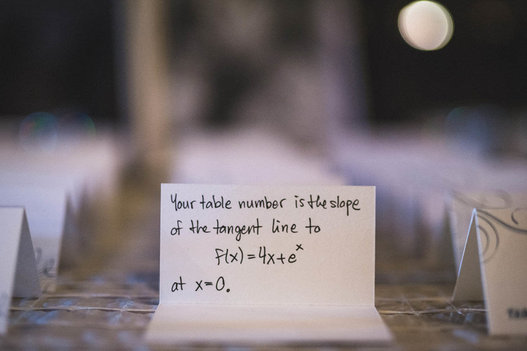 Your table number is the slope
of the tangent line to
f(x)=4x+eˣ
at x=0.